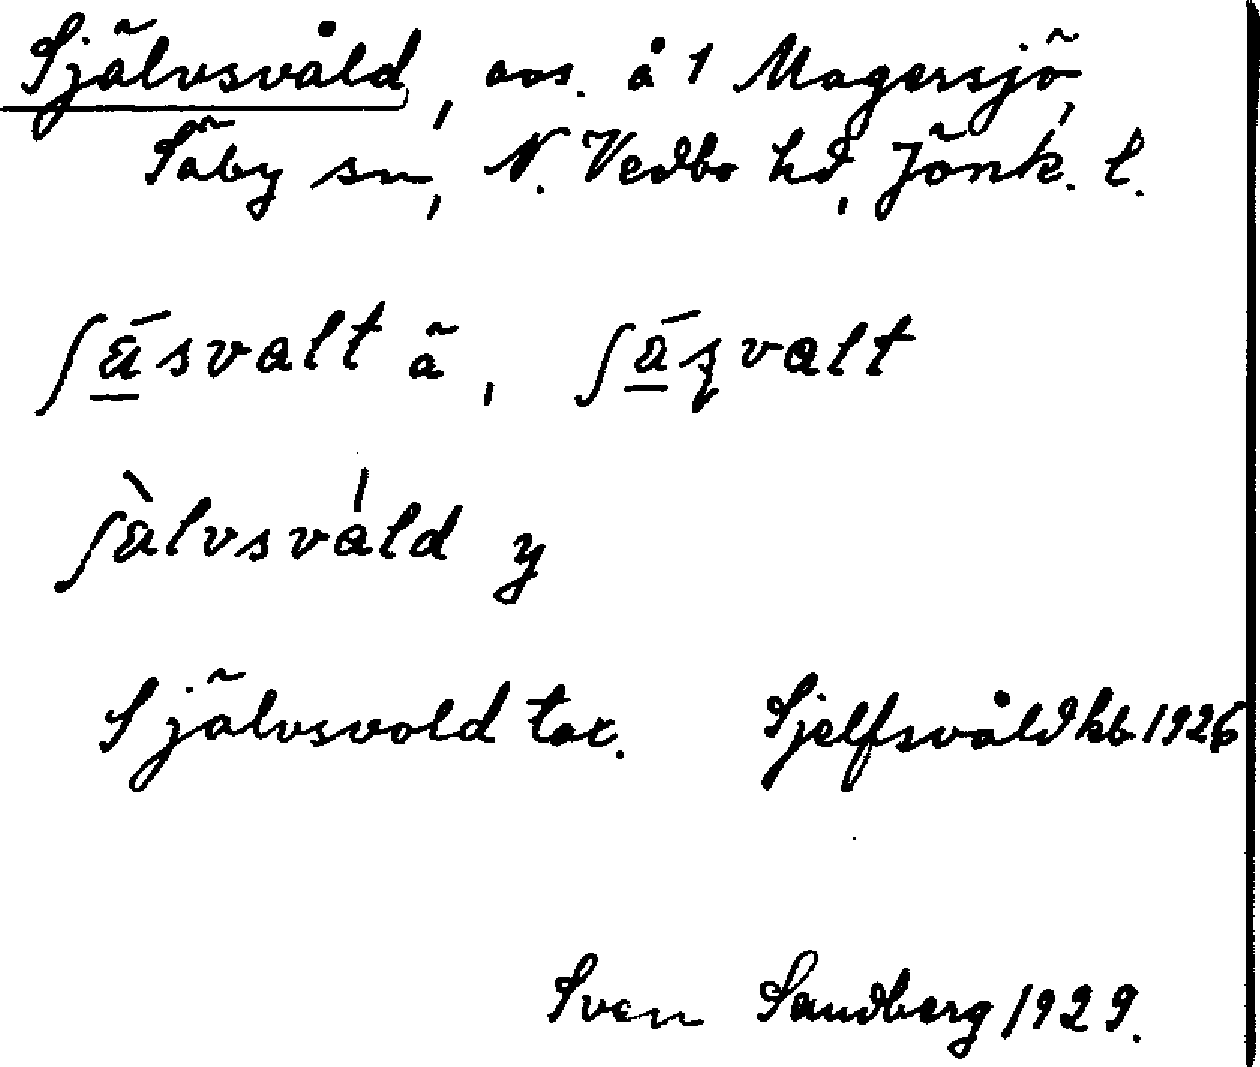 Självsvåld, avs. å 1 Magersjö,
Säby sn, N. Vedbo hd, Jönk. l.
ʃä́svalt ã, ʃä́ʂvalt
ʃä̀lvsváld y
Självsvold tax. Sjelfsvåld kb. 1926
Sven Sandberg 1929.